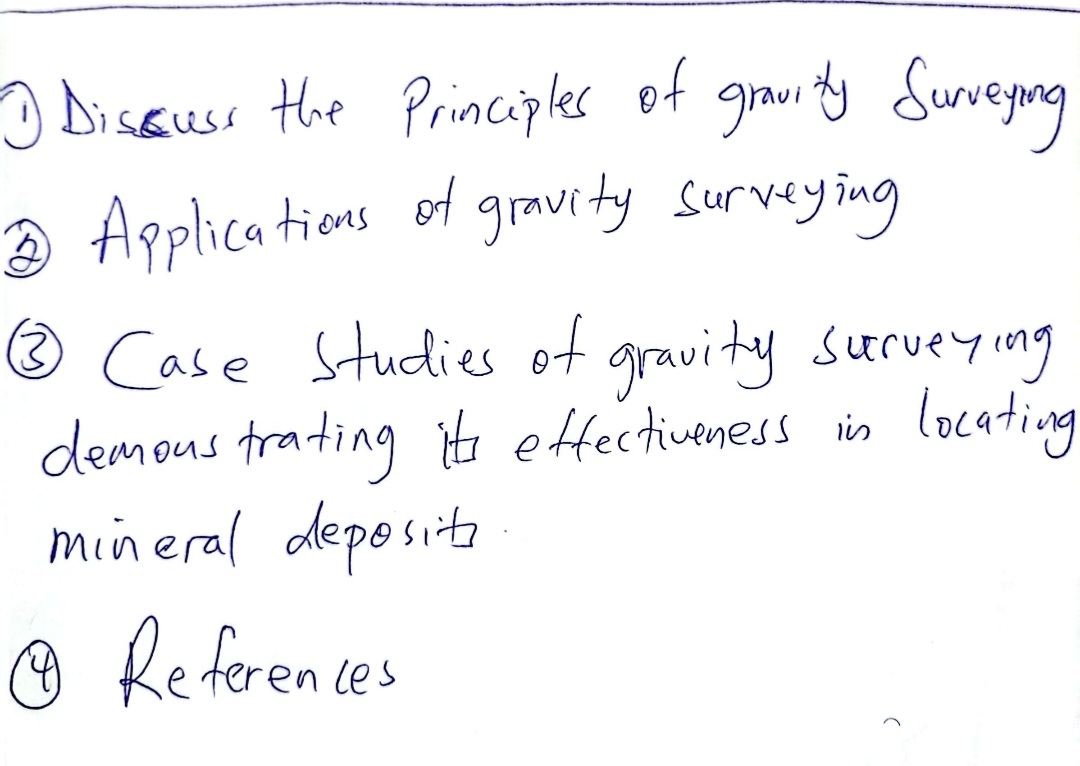 ① Discuss the Principles of gravity Surveying
② Applications of gravity surveying
③ Case Studies of gravity surveying
demonstrating its effectiveness in locating
mineral deposits.
④ References